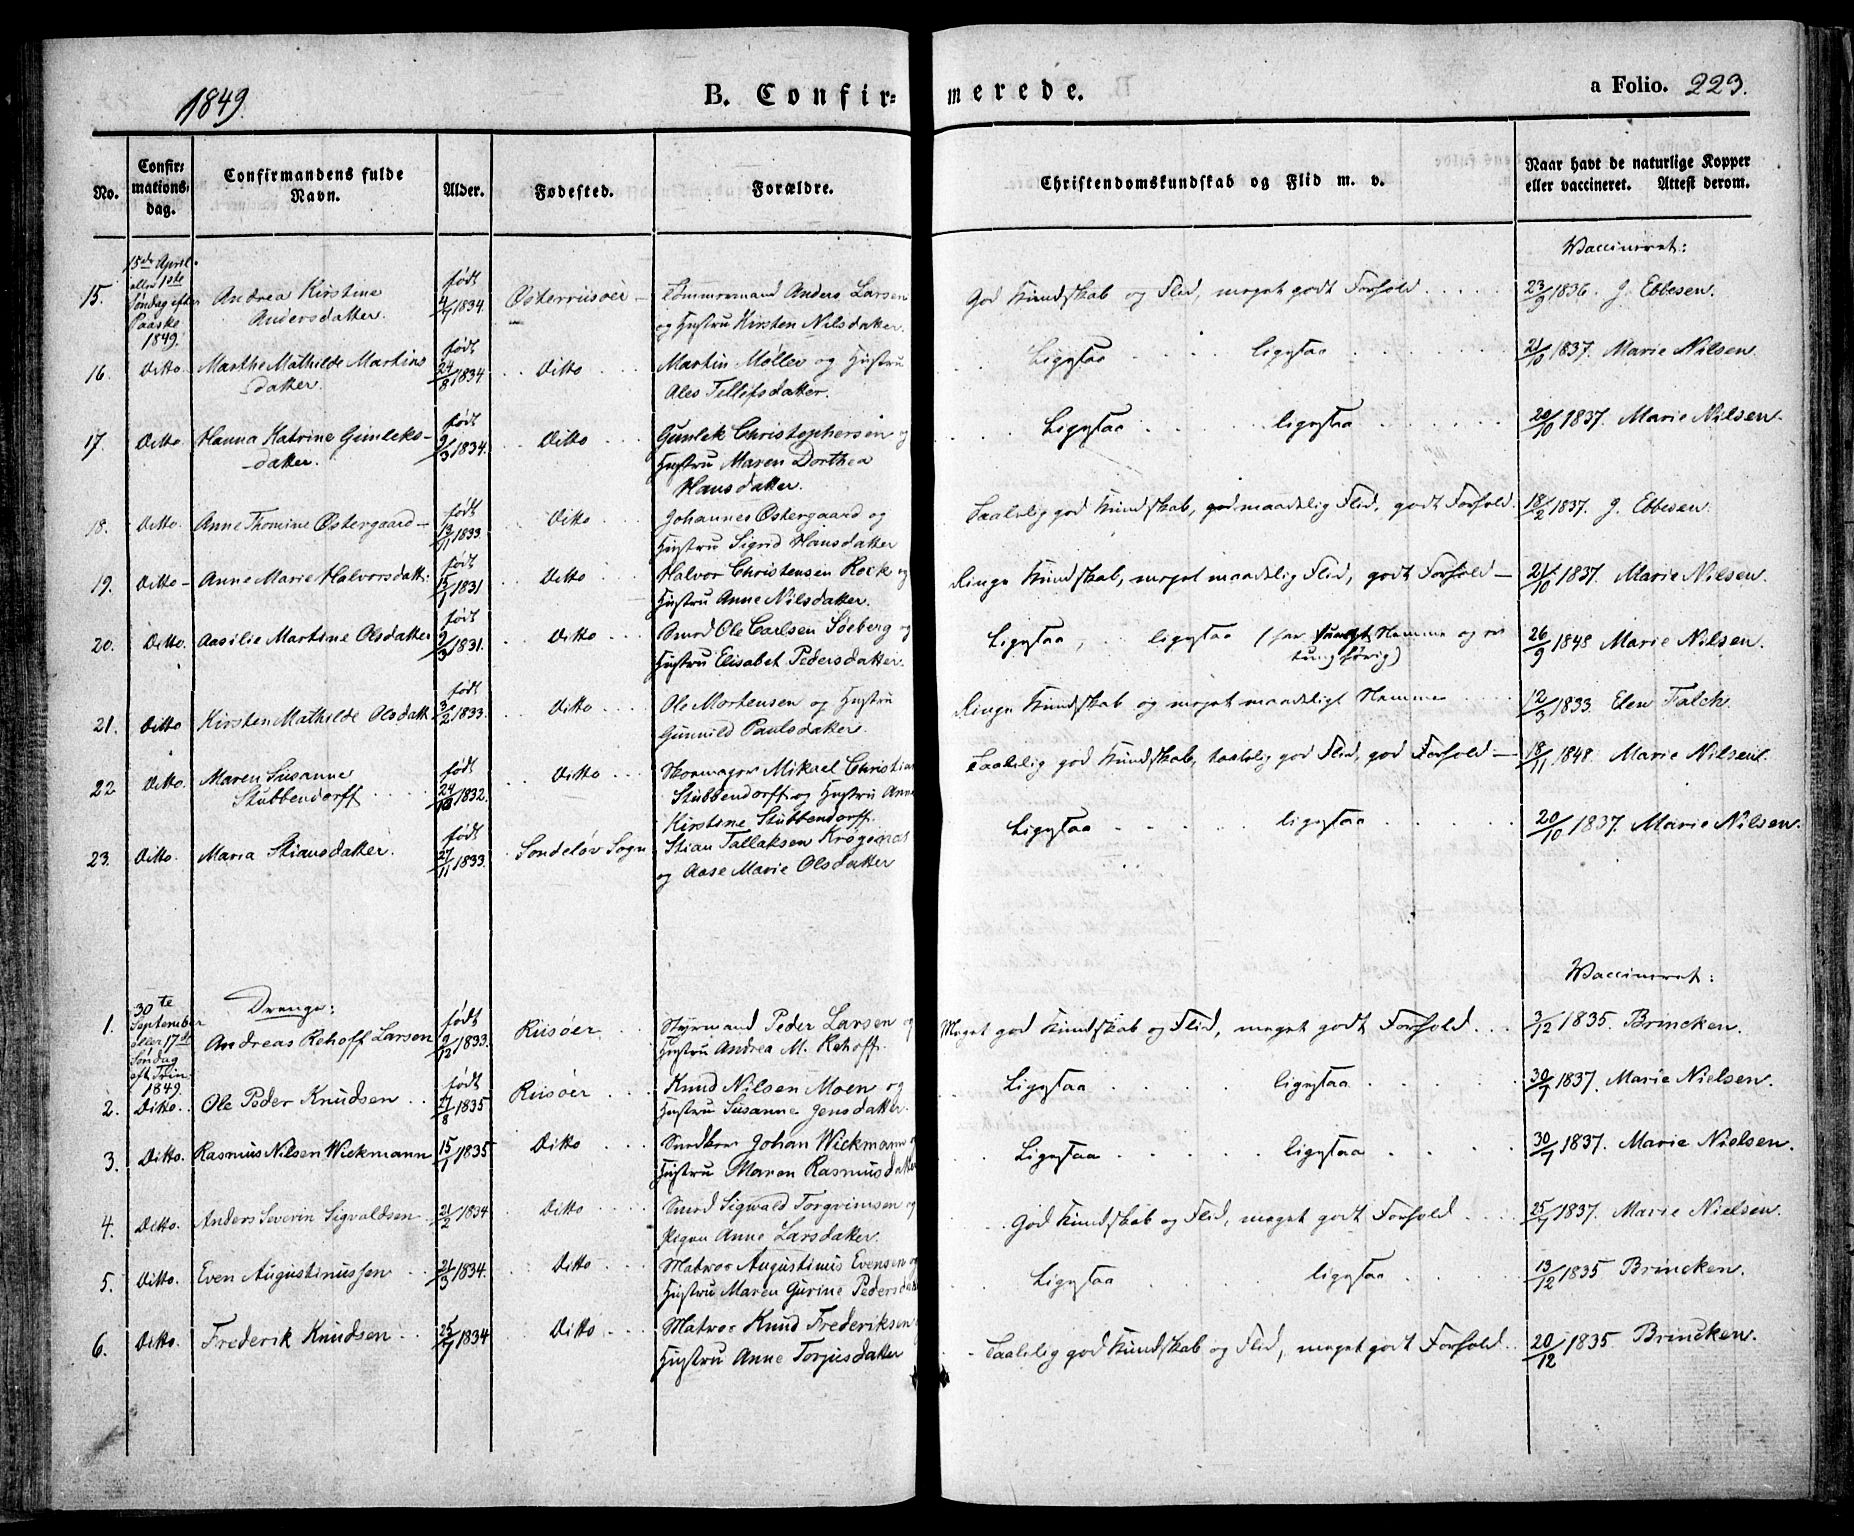 1849. B. Confirmerede. a Folio. 223.
No. Confirmations-dag. Confirmandens fulde Navn. Alder. Fødested. Forældre. Christendomskundskab og Flid m. v. Naar havt de naturlige Kopper eller vaccineret. Attest derom.
Vaccineret:
15. 15de April eller 1ste Søndag efter Paaske 1849. Andrea Kirstine Andersdatter. født 4/7 1834. Østerriisøer - Tømmermand Anders Larsen og Hustru Kirsten Nilsdatter. God Kundskab og Flid, meget godt Forhold 23/9 1836. J. Ebbesen.
16. Ditto. Marthe Mathilde Martinsdatter. født 24/8 1834 Ditto Martin Møller og Hustru Ales Tellefsdatter. Ligesaa ligesaa 21/10 1837. Marie Nilsen.
17. Ditto. Hanna Katrine Gunleksdatter. født 9/3 1834. Ditto Gunlek Christophersen og Hustru Maren Dorthea Hansdatter. Ligesaa ligesaa 20/10 1837. Marie Nilsen.
18. Ditto. Anne Thomine Østergaard - født 13/11 1833 Ditto Johannes Østergaard og Hustru Sigrid Hansdatter Taalelig god Kundskab, maadelig Flid, godt Forhold. 18/2 1837. J. Ebbesen.
19. Ditto - Anne Marie Halvorsdatt: født 15/1 1831 Ditto Halvor Christensen Rock og Hustru Anne Nilsdatter. Ringe Kundskab, meget maadelig Flid, godt Forhold - 21/10 1837. Marie Nilsen.
20. Ditto. Aasilie Martine Olsdatter født 9/3 1831. Ditto Smed Ole Carlsen Sieberg og Hustru Elisabet Pedersdatter. Ligesaa, ligesaa (har Nemme og er tunghørig) 26/9 1848 Marie Nilsen.
21. Ditto Kirsten Mathilde Olsdatt. født 3/2 1833. Ditto Ole Mortensen og Hustru Gunnild Paulsdatter. Ringe Kundskab og meget maadeligt Nemme 12/3 1833. Elen Falch.
22 Ditto. Maren Susanne Stubbendorff født 24/10 1832. Ditto Skomager Mikael Christian Stubbendorff og Hustru Anne Kirstine Stubbendorff. Taalelig god Kundskab, taalelig god Flid, god Forhold - 18/11 1848. Marie Nilsen.
23. Ditto. Maria Stiansdatter. født 27/11 1833. Søndeløv Sogn Stian Tallaksen og Aase Marie Olsdatter Ligesaa ligesaa 20/10 1837. Marie Nilsen.
Drenge:
Vaccineret:
1. 30te September eller 17de Søndag eft Trin 1849. Andreas Rehoff Larsen født 9/12 1833. Riisøer Styrmand Peder Larsen og Hustru Andrea M. Rehoff. Meget god Kundskab og Flid, meget godt Forhold 3/12 1835. Brincken.
2. Ditto. Ole Peder Knudsen født 27/8 1835 Riisøer Knud Nilsen Moen og Hustru Susanne Jensdatter. Ligesaa ligesaa 30/7 1837. Marie Nielsen.
3. Ditto. Rasmus Nilsen Wickmann 15/1 1835 Ditto Johan Wickmann og Hustru Maren Rasmusdatter Ligesaa ligesaa 30/7 1837. Marie Nielsen.
4. Ditto. Anders Severin Sigvaldsen 21/2 1834 Ditto Smed Sigwald Torgrimsen og Pigen Anne Larsdatter. God Kundskab og Flid, meget godt Forhold 25/7 1837. Marie Nielsen.
5. Ditto. Even Augustinussen 21/3 1834. Ditto Matros Augustinus Evensen og Hustru Maren Gurine Pedersdatt Ligesaa ligesaa 13/12 1835 Brincken.
6. Ditto. Frederik Knudsen 25/7 1834 Ditto Matros Knud Frederiksen Hustru Anne Torjusdatter - Taalelig god Kundskab og Flid, meget godt Forhold 20/12 1835 Brincken.